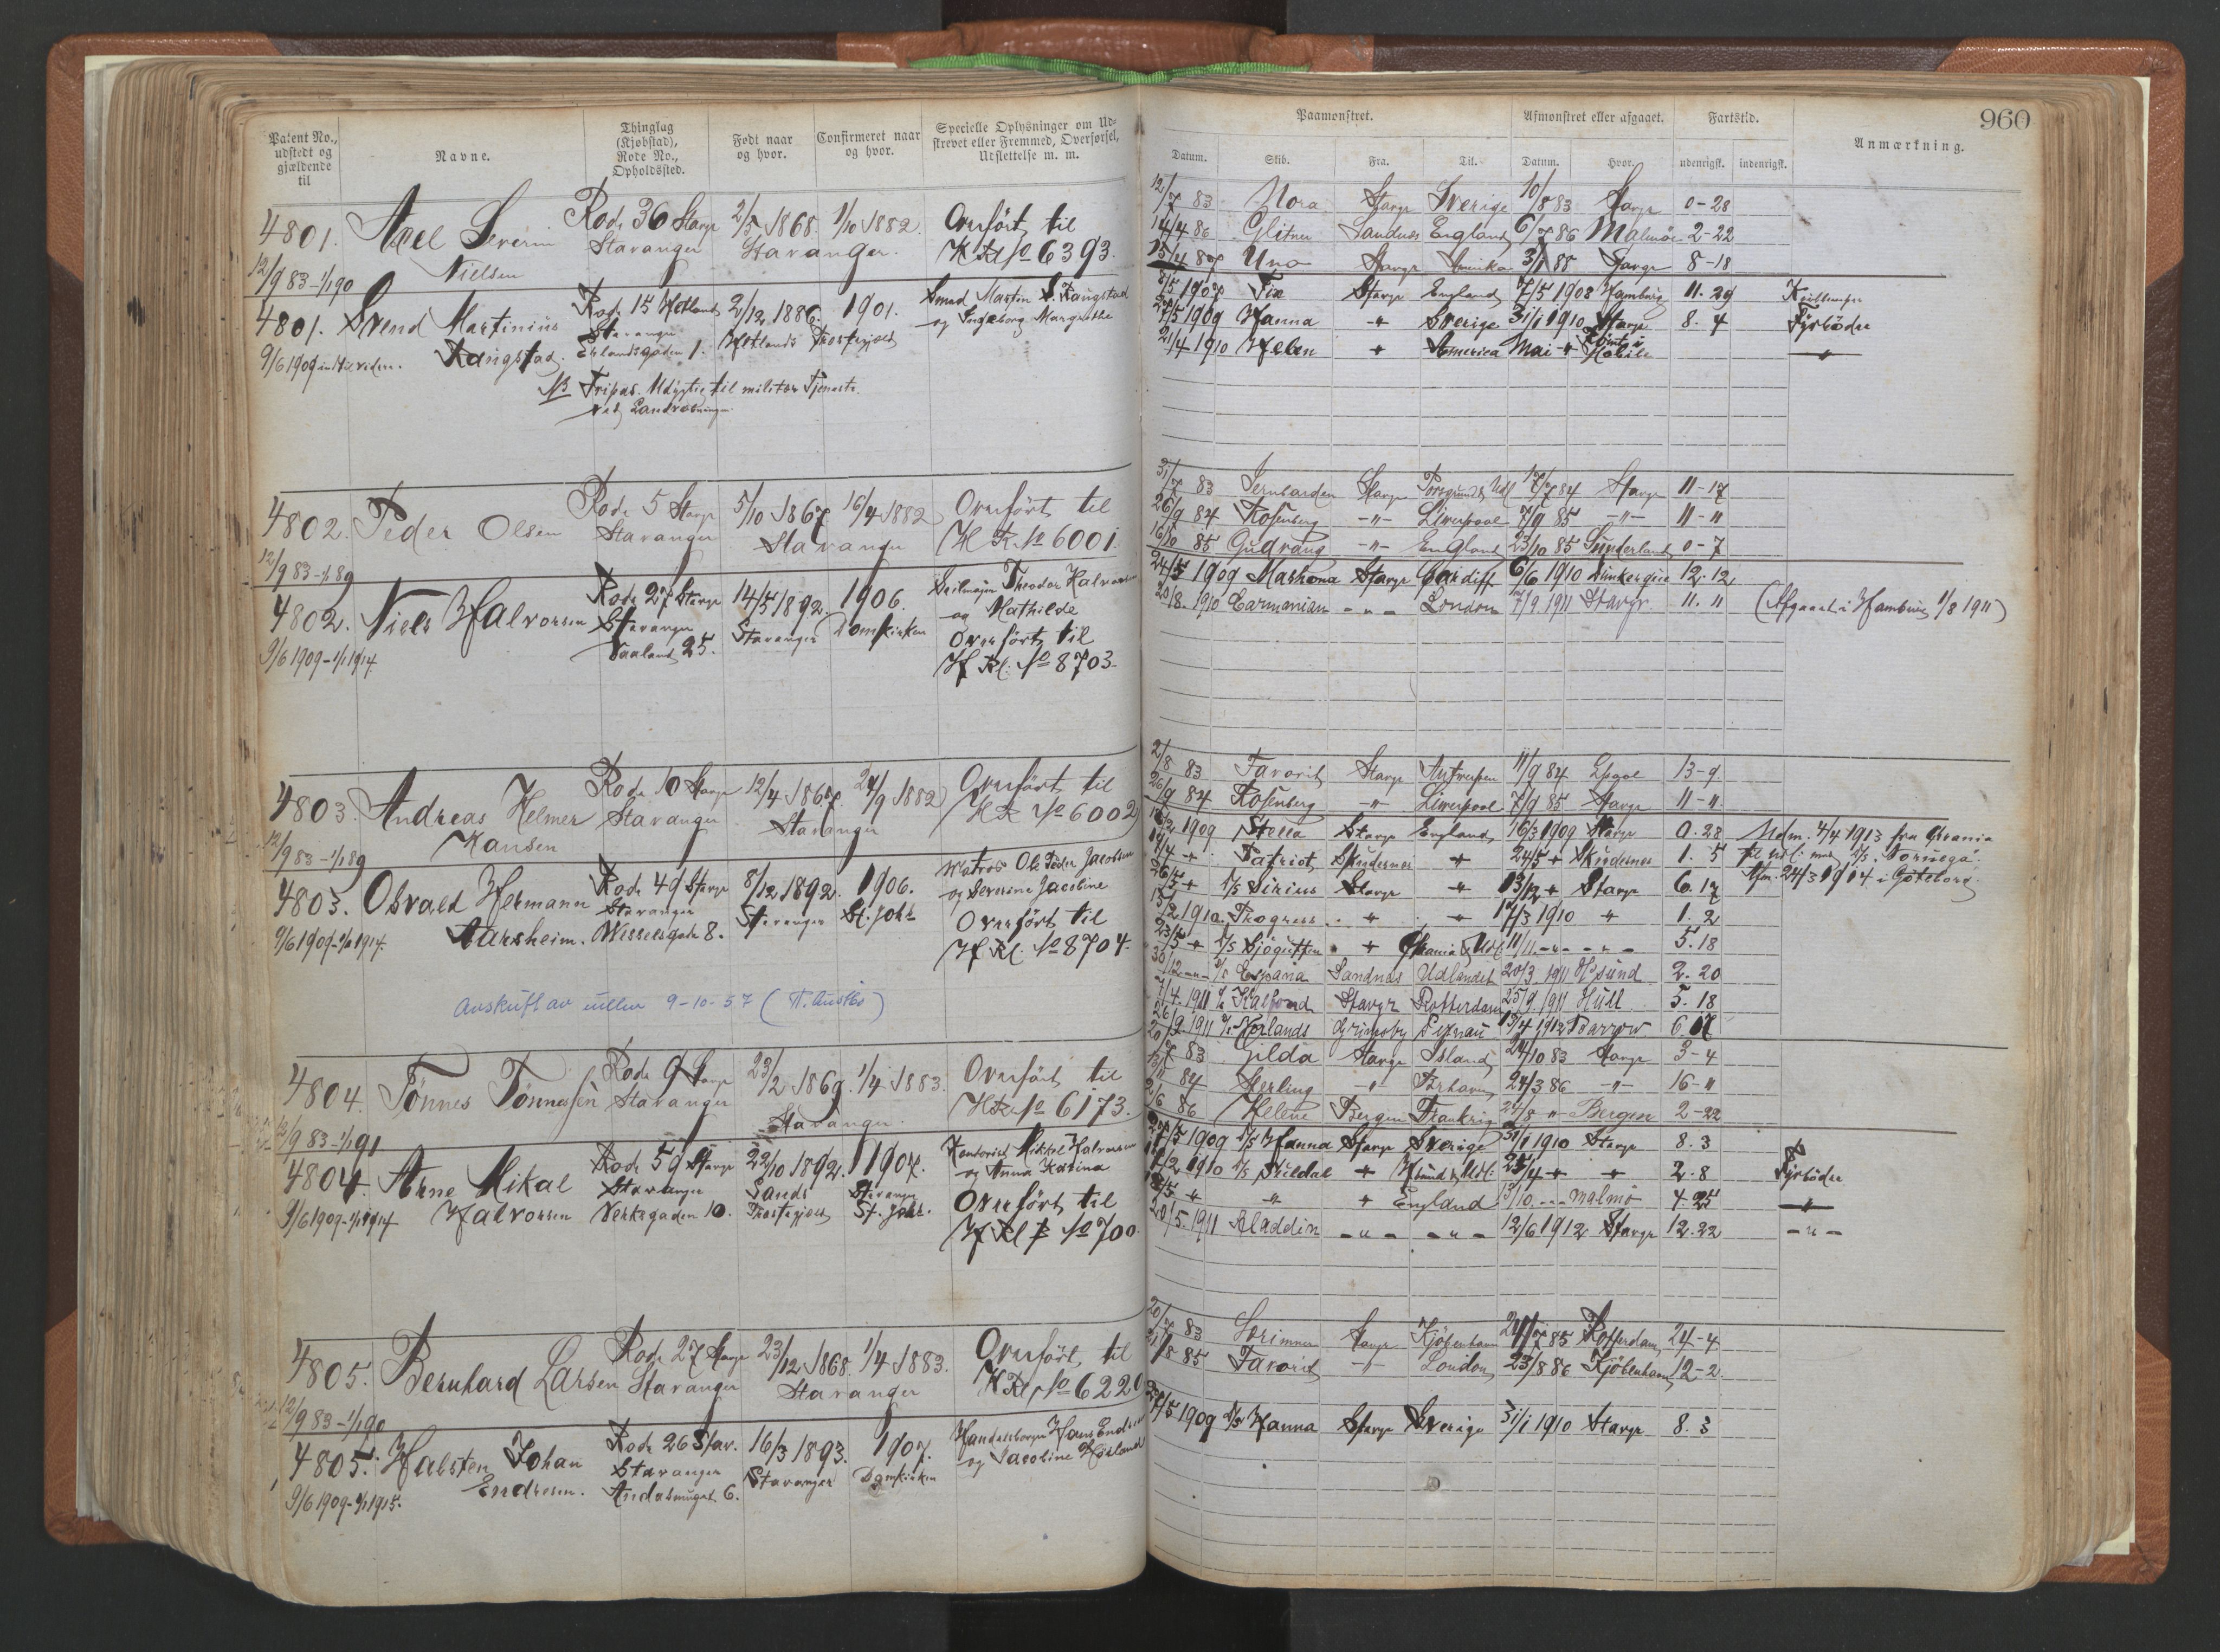 960
Patent No., udstedt og gjældende til
Navne.
Thinglag (Kjøbstad), Rode No., Opholdssted.
Født naar og hvor.
Confirmeret naar og hvor.
Specielle Oplysninger om Udstrevet eller Fremmed, Overførsel, Udslettelse m. m.
Paamønstret.
Afmønstret eller afgaaet.
Fartstid.
Anmærkning.
Datum. Skib. Fra. Til. Datum. Hvor. udenrigsk. indenrigsk.
4801. Axel Severin Nielsen
12/9 83-1/1 90
Rode 36 Stavgr Stavanger
2/5 1868. 1/10 1882.
Stavanger.
Overført til
H Rl No 6393.
12/7 83 Nora Stavgr Sverige 10/8 83 Stavgr 0-28
14/4 86 Glitner Sandnæs England 6/7 86 Malmöe 2-22
15/4 87 Uno Stavgr Amerika 3/1 88 Stavgr 8-18
4801. Svend Martinius Rangstad.
9/6 1909 indtil videre.
Rode 15 Hetland Stavanger
2/12 1886. 1901.
Hetlands Præstegjeld
Smed Martin S. Rangstad
og Ingeborg Margrethe
NB Fripas. Udygtig til militær Tjeneste
ved Landvæbningen
8/5 1907 Fix Stavgr England 7/5 1908 Hamburg 11. 29
27/5 1909 Hanna -"- Sverige 31/1 1910 Stavgr 8. 4 Fyrbøder
21/4 1910 Helen " America Mai " Rømt i Mobile "
4802. Peder Olsen
12/9 83-1/1 89
Rode 5 Stavgr Stavanger
5/10 1867 16/4 1882
Stavanger
Overført til
H Rl No 6001.
31/7 83 Jernbarden Stavgr Porsgrund & Udl 17/7 84 Stavgr 11-17
26/9 84 Rosenberg -"- Liverpool 7/9 85 -"- 11-11
16/10 85 Gudrang -"- England 23/10 85 Sunderland 0-7
4802. Niels Halvorsen
9/6 1909-1/1 1914.
Rode 27 Stavgr Stavanger
Vaaland 25.
14/5 1892. 1906.
Stavanger Domkirken
Seilmager Theodor Halvorsen
og Mathilde
Overført til
H Rl. No 8703.
24/5 1909 Mashona Stavgr Cardiff 6/6 1910 Dunkerque 12. 12.
20/8. 1910 Carmanian -"- London 7/9 1911 Stavgr. 11. 11 (Afgaaet i Hamburg 1/8 1911)
4803. Andreas Helmer Hansen
12/9 83-1/1 89
Rode 10 Stavgr Stavanger
12/4 1867. 24/9 1882
Stavanger
Overført til
H Rl No 6002
2/8 83 Favorit Stavgr Antwerpen 11/9 84 Lpool 13-9
26/9 84 Rosenberg -"- Liverpool 7/9 85 Stavgr 11-11
4803. Osvald Hermann Aarsheim.
9/6 1909-1/1 1914.
Rode 49 Stavgr Stavanger
Wesselsgade 8.
8/12 1892. 1906.
Stavanger St. Joh.
Matros Ole Peder Jacobsen
og Severine Jacobine
Overført til
H Rl No 8704.
Avskuft av rullen 9-10-57
1909 Stella Stavgr England 16/3 1909 Stavgr 0. 28
Patriot Skudesnes " 24/5 " Skudesnes 1. 5
26/5 " D/S Sirius Stavgr " 13/12 " Stavgr 6. 17
1910. Progress " " 17/3 1910 " 1. 2
23/5 " D/S Sjøgutten " Xiania & Udl. 11/11 -"- 5. 18
30/12 -"- D/S Espana Sandnæs Udlandet 20/3 1911 Hsund 2. 20
7/4. 1911 Kalfond Stavgr Rotterdam 25/9 1911 Hull 5. 18
26/9. 1911 Hørlands Grimsby Pernau 13/4 1912 Barrow 6 17
Udm. 4/4 1913 fra Xiania
til Udl. med D/S "Noruega".
Afm. 24/3 1914 i Göteborg.
4804. Tønnes Tønnesen
12/9 83-1/1 91
Rode 9 Stavgr Stavanger
23/2 1869. 1/4 1883.
Stavanger.
Overført til
H Rl No 6173.
20/7 83 Gilda Stavgr Island 24/10 83 Stavgr 3-4
84 Sterling -"- 24/3 86 -"- 16-11
2/6 86 Helene Bergen Frankrig 24/8 " Bergen 2-22
4804. Arne Mikal Halvorsen
9/6 1909-1/1 1914
Rode 59 Stavgr Stavanger
Verksgaden 10.
22/10 1892. 1907.
Sands Præstegjeld Stavanger St. Joh.
Kontorist Mikkel Halvorsen
og Anna Karina
Overført til
H Rl No 700
27/5 1909 D/S Hanna Stavgr Sverige 31/1 1910 Stavgr 8. 3
1910 D/S Sildal " Hsund & Udl. 25/4 " " 2. 8 Fyrbøder
" " " England 13/10. -"- Malmö 4. 25 "
20/5. 1911 Aladdin -"- -"- 12/6 1912 Stavgr 12. 22 -"-
4805. Bernhard Larsen
12/9 83-1/1 90
Rode 27 Stavgr Stavanger
23/12 1868. 1/4 1883.
Stavanger
Overført til
H Rl No 6220
20/7 83 Sorimner Stavgr Kjøbenhavn 24/7 85 Rotterdam 24-4
21/8 85 Favorit -"- London 23/8 86 Kjøbenhavn 12-2.
4805. Halsten Johan Endresen.
9/6 1909-1/1 1915.
Rode 26 Stav. Stavanger
16/3 1893. 1907.
Stavanger Domkirken
Handelsborger Hans Endresen
og Jacobine Hørland
27/5 1909 D/S Hanna Stavgr Sverige 31/1 1910 Stavgr 8. 3